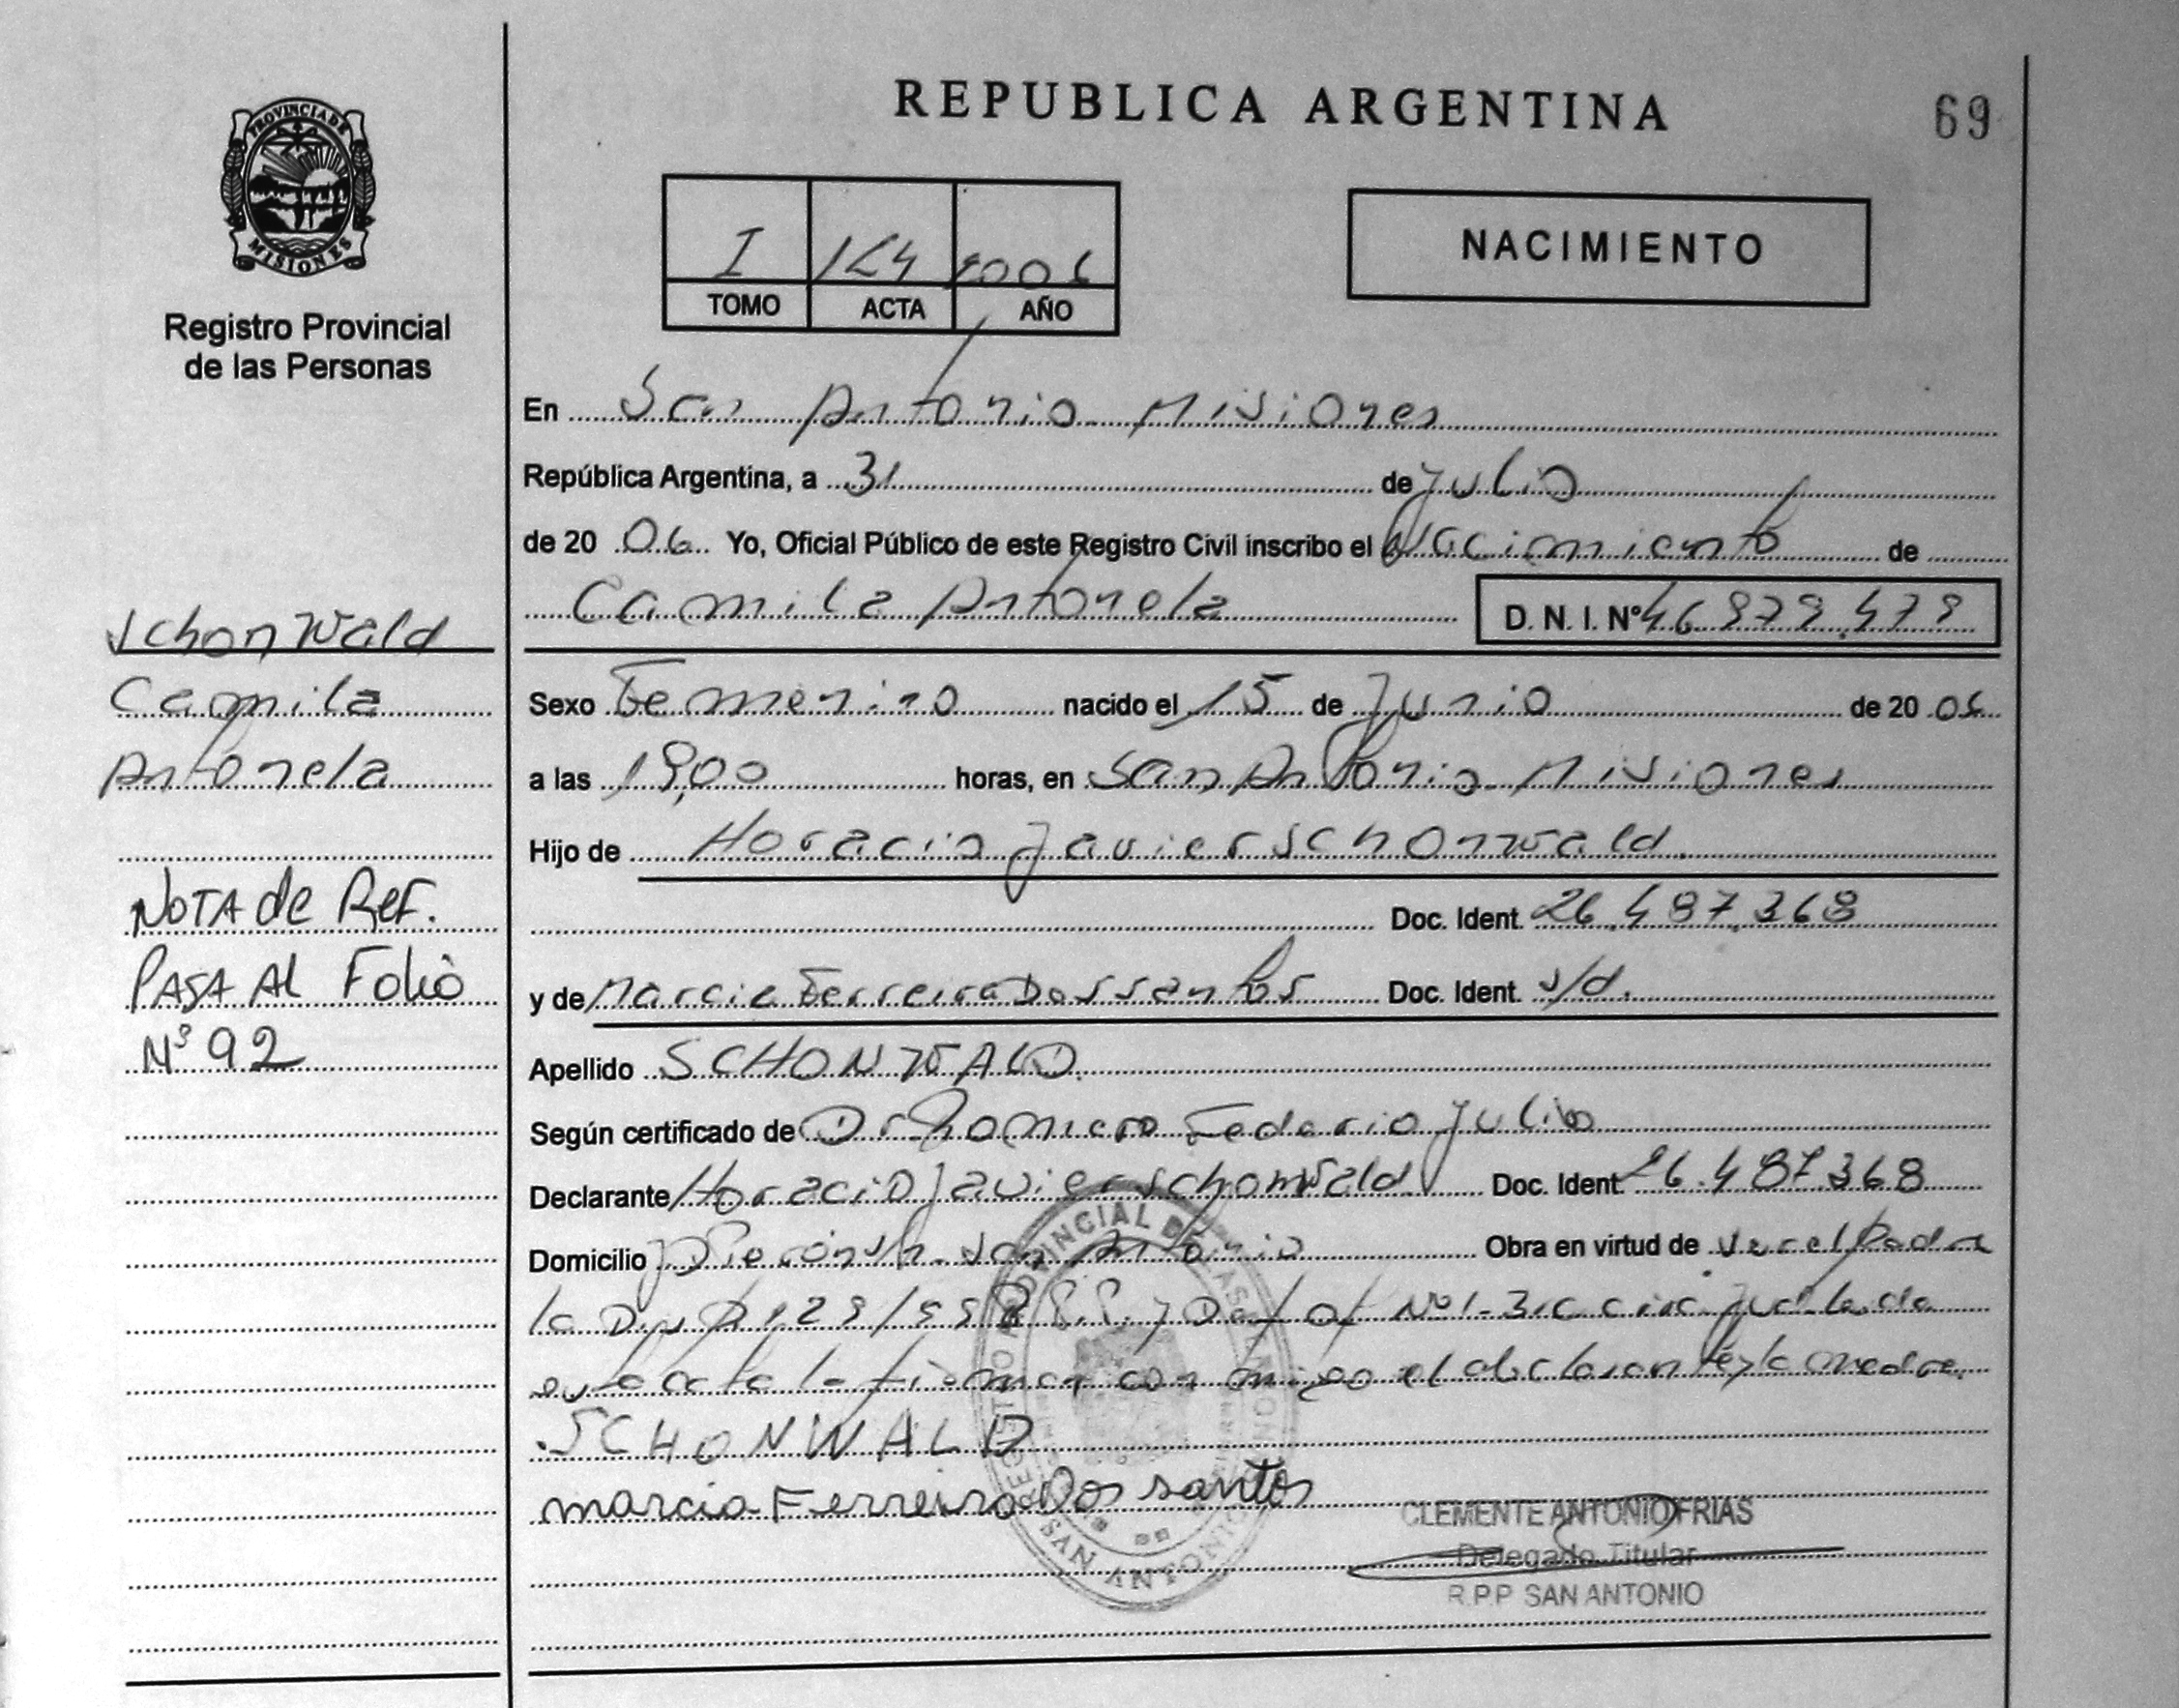 REPUBLICA ARGENTINA
69
PROVINCIA DE
MISIONES
Registro Provincial
de las Personas
I
TOMO ACTA AÑO
NACIMIENTO
En San Antonio Misiones
República Argentina, a 31 de Julio
de 20 06 Yo, Oficial Público de este Registro Civil inscribo el Nacimiento de
Camila Antonela D. N. I. Nº
Schonwald
Camila
Antonela
NOTA de Ref.
PASA Al Folio
Nº 92
Sexo Femenino nacido el 15 de Junio de 20 06
a las horas, en San Antonio Misiones
Hijo de Horacio Javier Schonwald
Doc. Ident. 26.487.368
y de Marcia Ferreira Dos santos Doc. Ident. s/d.
Apellido SCHONWALD
Según certificado de Dr Romero Julio
Declarante Horacio Javier Schonwald Doc. Ident. 26.487368
Domicilio San Antonio Obra en virtud de ser el Padre
la
esta acta la firman con migo el declarante y la madre.
SCHONWALD
marcia Ferreira Dos santos
CLEMENTE ANTONIO FRIAS
Delegado Titular
R.P.P SAN ANTONIO